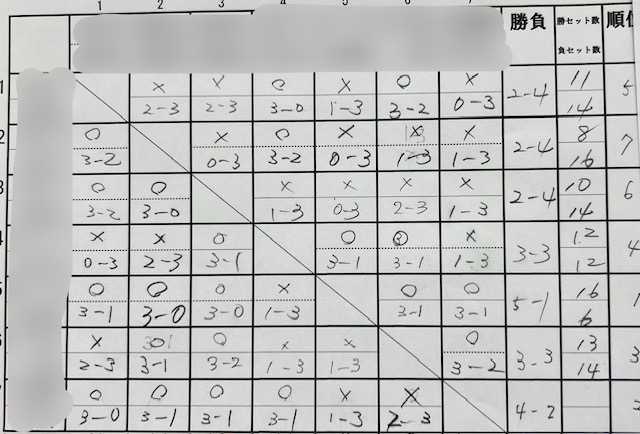 1 2 3 4 5 6 7
勝負 勝セット数 順位
負セット数
1 × × ○ × ○ × 11
2-3 2-3 3-0 1-3 3-2 0-3 2-4 14 5
2 ○ × ○ × × × 8
3-2 0-3 3-2 0-3 1-3 1-3 2-4 16 7
3 ○ ○ × × × × 10
3-2 3-0 1-3 0-3 2-3 1-3 2-4 14 6
4 × × ○ ○ ○ × 12
0-3 2-3 3-1 3-1 3-1 1-3 3-3 12 4
5 ○ ○ ○ × ○ ○ 16
3-1 3-0 3-0 1-3 3-1 3-1 5-1 6 1
6 × ○ ○ × × ○ 13
2-3 3-1 3-2 1-3 1-3 3-2 3-3 14 3
○ ○ ○ ○ × ×
3-0 3-1 3-1 3-1 1-3 2-3 4-2